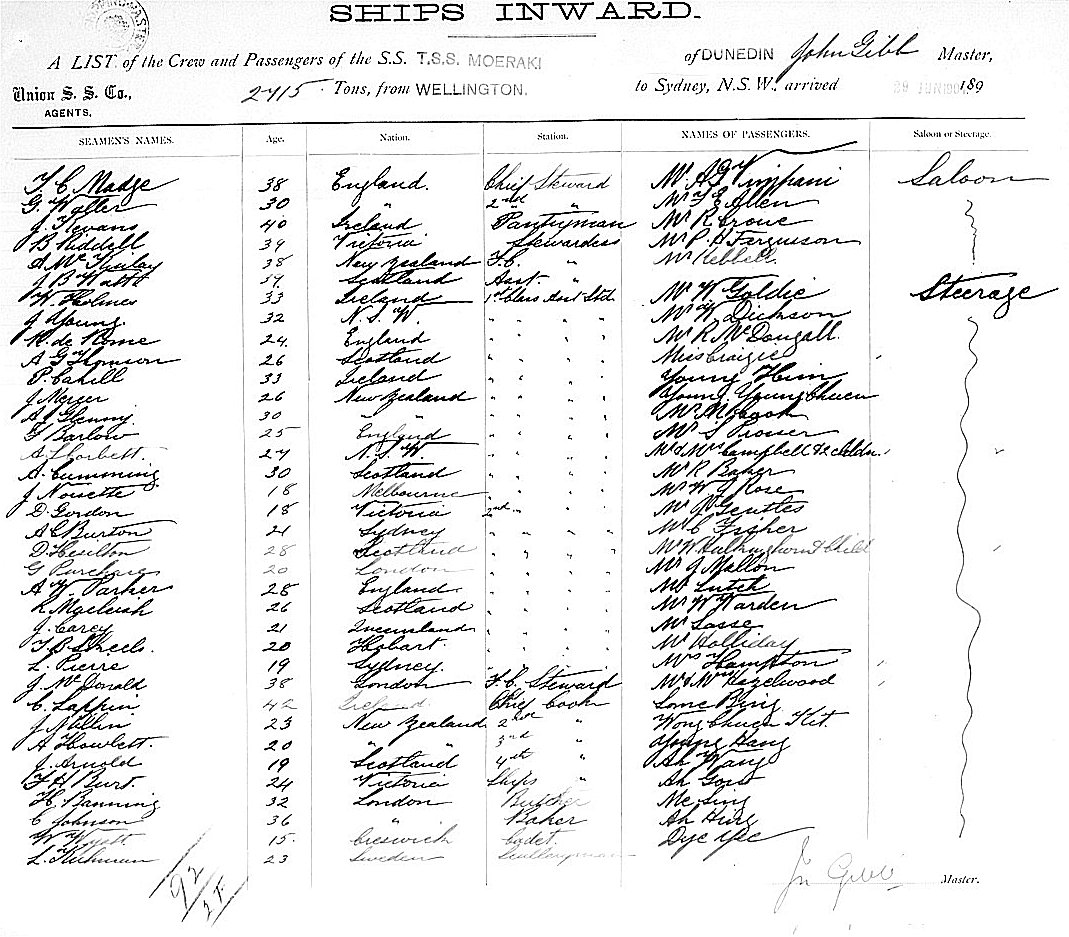 SHIPS INWARD.
A LIST of the Crew and Passengers of the S.S. T.S.S. MOERAKI of DUNEDIN John Gibb Master,
Union S. S. Co., 2715 Tons, from WELLINGTON. to Sydney, N.S.W., arrived 29 JUN 190 189
AGENTS.
SEAMEN'S NAMES. Age. Nation. Station. NAMES OF PASSENGERS. Saloon or Steerage.
T. C Madge 38 England. Chief Steward Mr A G Timpani Saloon
G. Waller 30 " 2nd " Allen
J Stevans 40 Ireland Pantryman Mr R Crowe
B Riddell 39 Victoria Stewardess Mr P. H Ferguson
A. Mc 38 New Zealand F.C. " Mr Kebbell.
J B Watt 59 Scotland Asst. "
W. Holmes 33 Ireland 1st Class Asst Std. Mr W Goldie Steerage
J Young. 32 N. S. W. " " " " Mr W Dickson
de Rome 24 England " " " " Mr R. McDougall.
A G Thomson 26 Scotland " " " " Miss Craigie
P. Cahill 33 Ireland " " " " Young Hum
J Mercer 26 New Zealand " " " " Young Young Chuen
A. Glenny 30 " " " " " " Mr M Cook
Barlow 25 England " " " " Mr S Prosser
A. Corbett. 27 N. S. W. " " " " Mr & Mrs Campbell & 2 childn.
A. Cumming 30 Scotland " " " " Mr R Baker
J Nonette 18 Melbourne " " " " Mr W J Rose
D. Gordon 18 Victoria 2nd " " " Gentles
A C Burton 21 Sydney " " " " Mr C Fisher
D Heulton 28 Scotland " " " " & Child
G Purchase 20 London " " " " Mr J Mallon
A W. Parker 28 England " " " " Lutch
Macleish 26 Scotland " " " " Mr W Warden
J. Carey 21 Queensland " " " " Mr Sasse
T. B. Skeels. 20 Hobart. " " " " Mr Holliday
L. Pierre 19 Sydney. " " " " Mrs Hampton
J. McDonald 38 London F. C. Steward Mr & Mrs Hazelwood
C. Lappin 42 Ireland. Chief Cook Some Bing
J. Jillin 23 New Zealand 2nd " Wong Chuen Kit.
A Howlett. 20 " " 3rd " Young Hang
J. Arnold 19 Scotland 4th " Ah Wang
F. H Burt. 24 Victoria Ships " Ah Gout
H. Banning 32 London Butcher Me Sing
C Johnson 36 " Baker Ah Hing
W Wyatt 15. Creswick Cadet. Dye Yee
L. 23 Sweden Sculleryman
92
Jn Gibb Master.